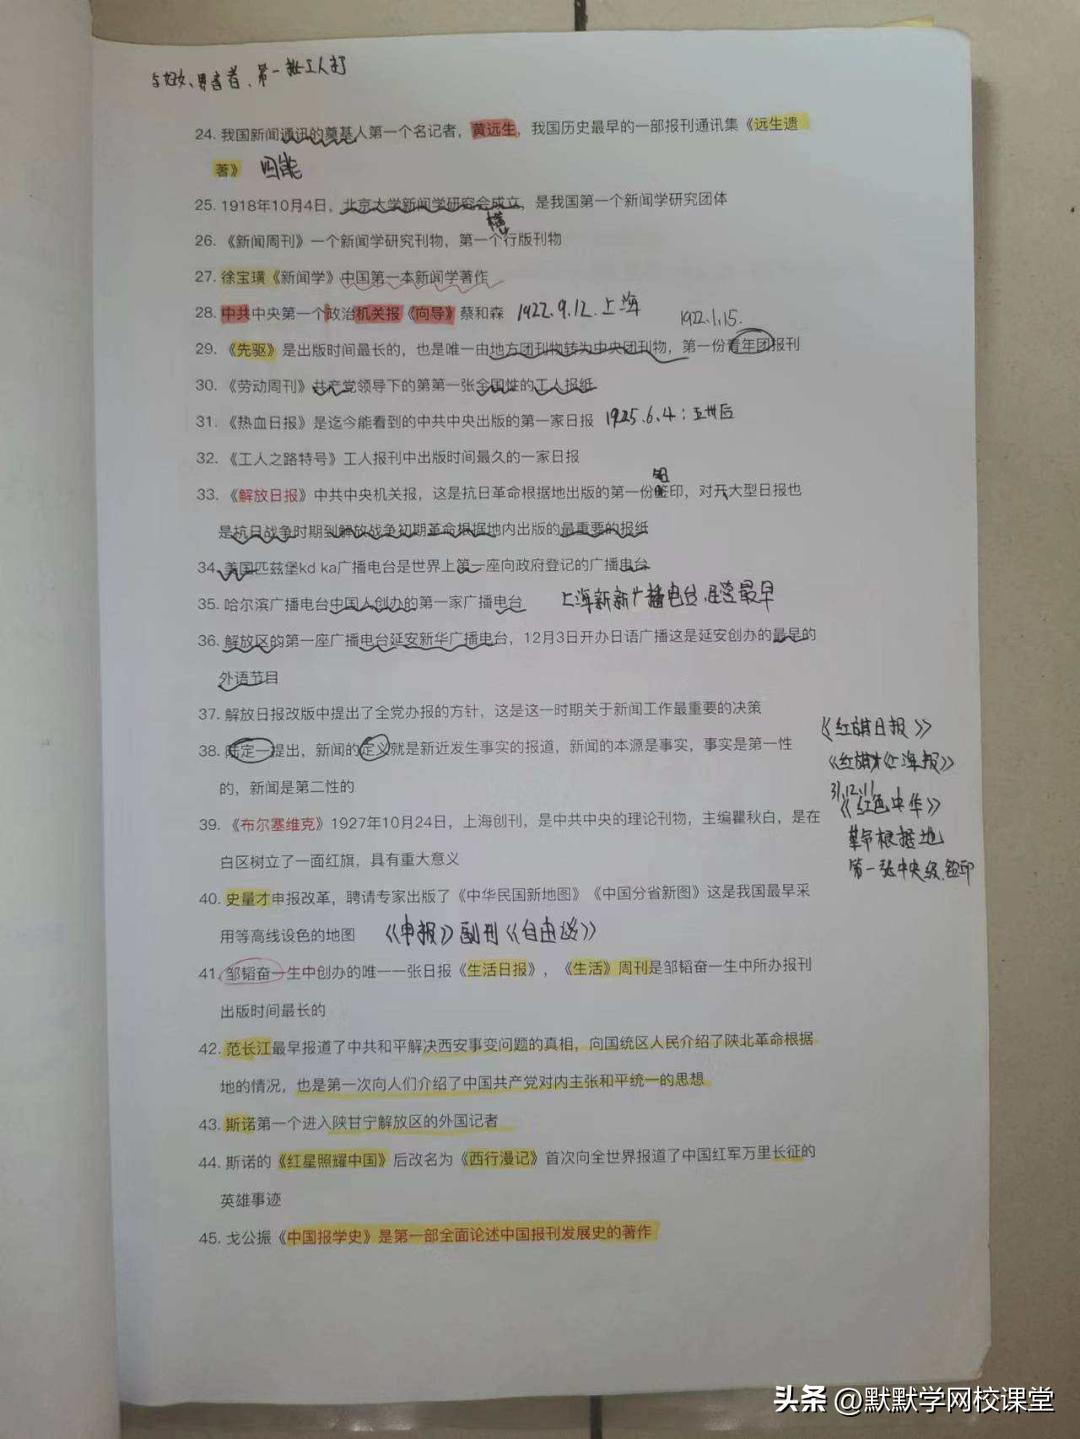 与妇女、劳动者、第一批工人打
24. 我国新闻通讯的奠基人第一个名记者，黄远生，我国历史最早的一部报刊通讯集《远生遗
著》 四能
25. 1918年10月4日，北京大学新闻学研究会成立，是我国第一个新闻学研究团体
横
26. 《新闻周刊》一个新闻学研究刊物，第一个行版刊物
27. 徐宝璜《新闻学》中国第一本新闻学著作
28. 中共中央第一个政治机关报《向导》蔡和森 1922.9.12.上海
1922.1.15.
29. 《先驱》是出版时间最长的，也是唯一由地方团刊物转为中央团刊物，第一份青年团报刊
30. 《劳动周刊》共产党领导下的第第一张全国性的工人报纸
31. 《热血日报》是迄今能看到的中共中央出版的第一家日报 1925.6.4：五卅后
32. 《工人之路特号》工人报刊中出版时间最久的一家日报
铅
33. 《解放日报》中共中央机关报，这是抗日革命根据地出版的第一份签印，对开大型日报也
是抗日战争时期到解放战争初期革命根据地内出版的最重要的报纸
34. 美国匹兹堡kd ka广播电台是世界上第一座向政府登记的广播电台
35. 哈尔滨广播电台中国人创办的第一家广播电台 上海新新广播电台,民营最早
36. 解放区的第一座广播电台延安新华广播电台，12月3日开办日语广播这是延安创办的最早的
外语节目
37. 解放日报改版中提出了全党办报的方针，这是这一时期关于新闻工作最重要的决策
38. 陆定一提出，新闻的定义就是新近发生事实的报道，新闻的本源是事实，事实是第一性
的，新闻是第二性的
《红旗日报》
《红旗》《上海报》
31.12.11
《红色中华》
革命根据地
第一张中央级.铅印
39. 《布尔塞维克》1927年10月24日，上海创刊，是中共中央的理论刊物，主编瞿秋白，是在
白区树立了一面红旗，具有重大意义
40. 史量才申报改革，聘请专家出版了《中华民国新地图》《中国分省新图》这是我国最早采
用等高线设色的地图 《申报》副刊《自由谈》
41. 邹韬奋一生中创办的唯一一张日报《生活日报》，《生活》周刊是邹韬奋一生中所办报刊
出版时间最长的
42. 范长江最早报道了中共和平解决西安事变问题的真相，向国统区人民介绍了陕北革命根据
地的情况，也是第一次向人们介绍了中国共产党对内主张和平统一的思想
43. 斯诺第一个进入陕甘宁解放区的外国记者
44. 斯诺的《红星照耀中国》后改名为《西行漫记》首次向全世界报道了中国红军万里长征的
英雄事迹
45. 戈公振《中国报学史》是第一部全面论述中国报刊发展史的著作
头条 @默默学网校课堂